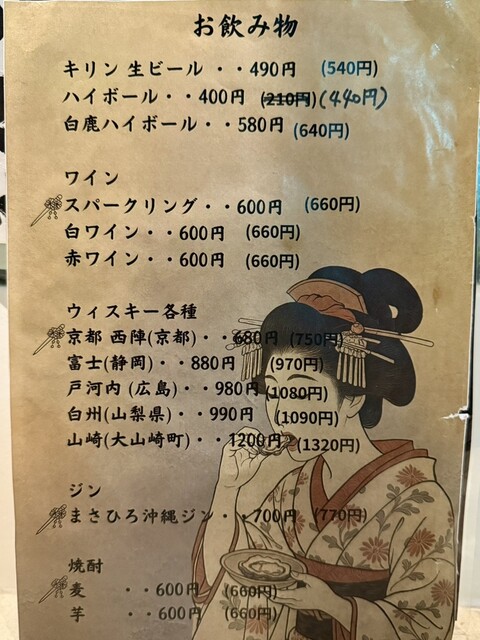 お飲み物
キリン 生ビール ・・490円 (540円)
ハイボール・・400円 (210円)(440円)
白鹿ハイボール・・580円 (640円)
ワイン
スパークリング・・600円 (660円)
白ワイン・・600円 (660円)
赤ワイン・・600円 (660円)
ウィスキー各種
京都 西陣(京都)・・680円 (750円)
富士(静岡)・・880円 (970円)
戸河内 (広島)・・980円 (1080円)
白州(山梨県)・・990円 (1090円)
山崎(大山崎町)・・1200円 (1320円)
ジン
まさひろ沖縄ジン・・700円 (770円)
焼酎
麦 ・・600円 (660円)
芋 ・・600円 (660円)